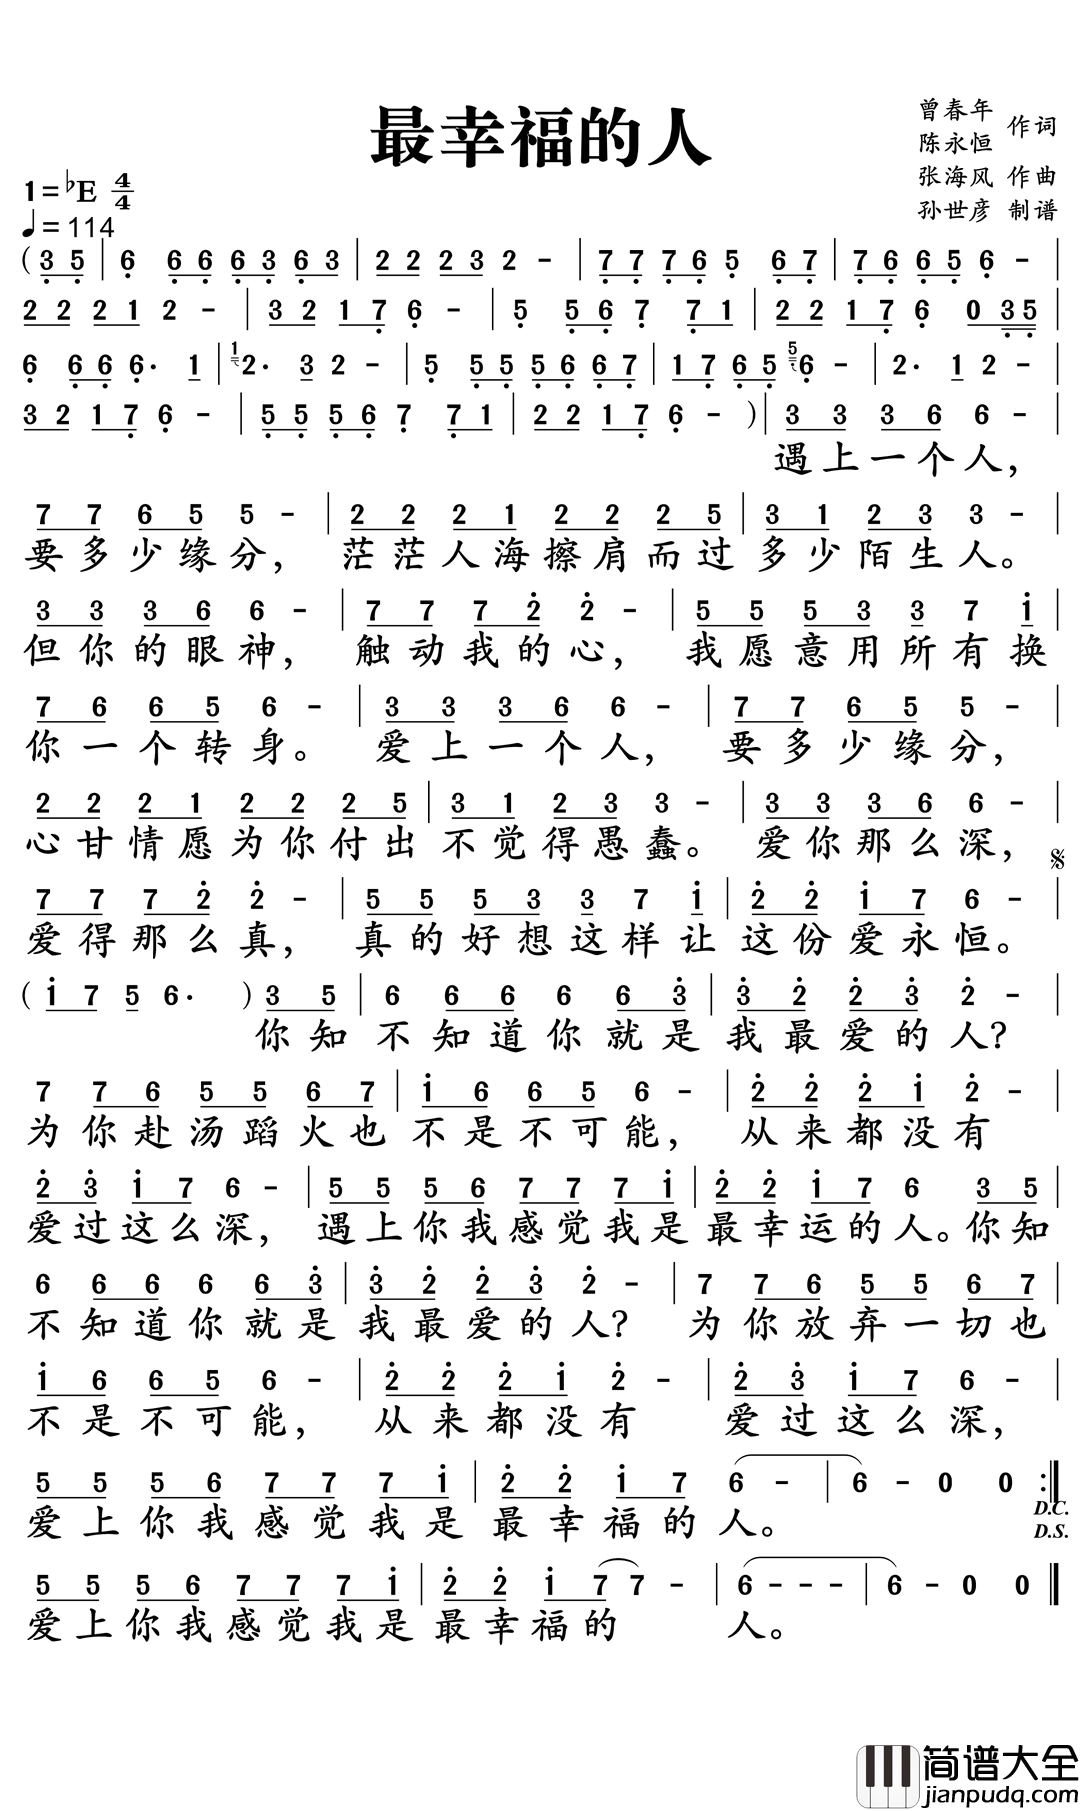 最幸福的人
曾春年
陈永恒 作词
张海风 作曲
孙世彦 制谱
1=♭E 4/4
♩=114
(3 5 | 6 6 6 6 3 6 3 | 2 2 2 3 2 - | 7 7 7 6 5 6 7 | 7 6 6 5 6 - |
2 2 2 1 2 - | 3 2 1 7 6 - | 5 5 6 7 7 1 | 2 2 1 7 6 0 3 5 |
6 6 6 6· 1 | 1 2· 3 2 - | 5 5 5 5 6 6 7 | 1 7 6 5 5 6 - | 2· 1 2 - |
3 2 1 7 6 - | 5 5 5 6 7 7 1 | 2 2 1 7 6 - )| 3 3 3 6 6 - |
遇上一个人,
7 7 6 5 5 - | 2 2 2 1 2 2 2 5 | 3 1 2 3 3 - |
要多少缘分, 茫茫人海擦肩而过 多少陌生人。
3 3 3 6 6 - | 7 7 7 2̇ 2̇ - | 5 5 5 3 3 7 1̇ |
但你的眼神, 触动我的心, 我愿意用所有换
7 6 6 5 6 - | 3 3 3 6 6 - | 7 7 6 5 5 - |
你一个转身。 爱上一个人, 要多少缘分,
2 2 2 1 2 2 2 5 | 3 1 2 3 3 - | 3 3 3 6 6 - |
心甘情愿为你付出 不觉得愚蠢。 爱你那么深,
𝄋
7 7 7 2̇ 2̇ - | 5 5 5 3 3 7 1̇ | 2̇ 2̇ 1̇ 7 6 - |
爱得那么真, 真的好想这样让 这份爱永恒。
(1̇ 7 5 6· ) 3 5 | 6 6 6 6 6 3̇ | 3̇ 2̇ 2̇ 3̇ 2̇ - |
你知 不知道你就是 我最爱的人?
7 7 6 5 5 6 7 | 1̇ 6 6 5 6 - | 2̇ 2̇ 2̇ 1̇ 2̇ - |
为你赴汤蹈火也 不是不可能, 从来都没有
2̇ 3̇ 1̇ 7 6 - | 5 5 5 6 7 7 7 1̇ | 2̇ 2̇ 1̇ 7 6 3 5 |
爱过这么深, 遇上你我感觉我是 最幸运的人。你知
6 6 6 6 6 3̇ | 3̇ 2̇ 2̇ 3̇ 2̇ - | 7 7 6 5 5 6 7 |
不知道你就是 我最爱的人? 为你放弃一切也
1̇ 6 6 5 6 - | 2̇ 2̇ 2̇ 1̇ 2̇ - | 2̇ 3̇ 1̇ 7 6 - |
不是不可能, 从来都没有 爱过这么深,
5 5 5 6 7 7 7 1̇ | 2̇ 2̇ 1̇ 7 6 - | 6 - 0 0 :‖
爱上你我感觉我是 最幸福的人。
D.C.
D.S.
5 5 5 6 7 7 7 1̇ | 2̇ 2̇ 1̇ 7 7 - | 6 - - - | 6 - 0 0 ‖
爱上你我感觉我是 最幸福的 人。
简谱大全
jianpudq.com